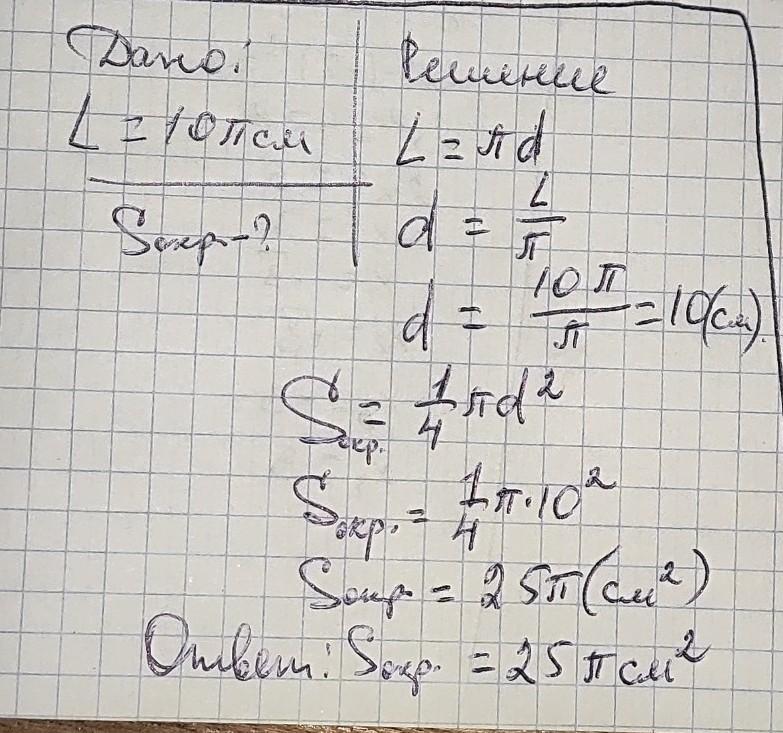 Дано:
L = 10π см
Sокр. - ?
Решение
L = πd
d = L/π
d = 10π/π = 10(см).
Sокр. = 1/4 πd²
Sокр. = 1/4 π·10²
Sокр = 25π(см²)
Ответ: Sокр. = 25π см²